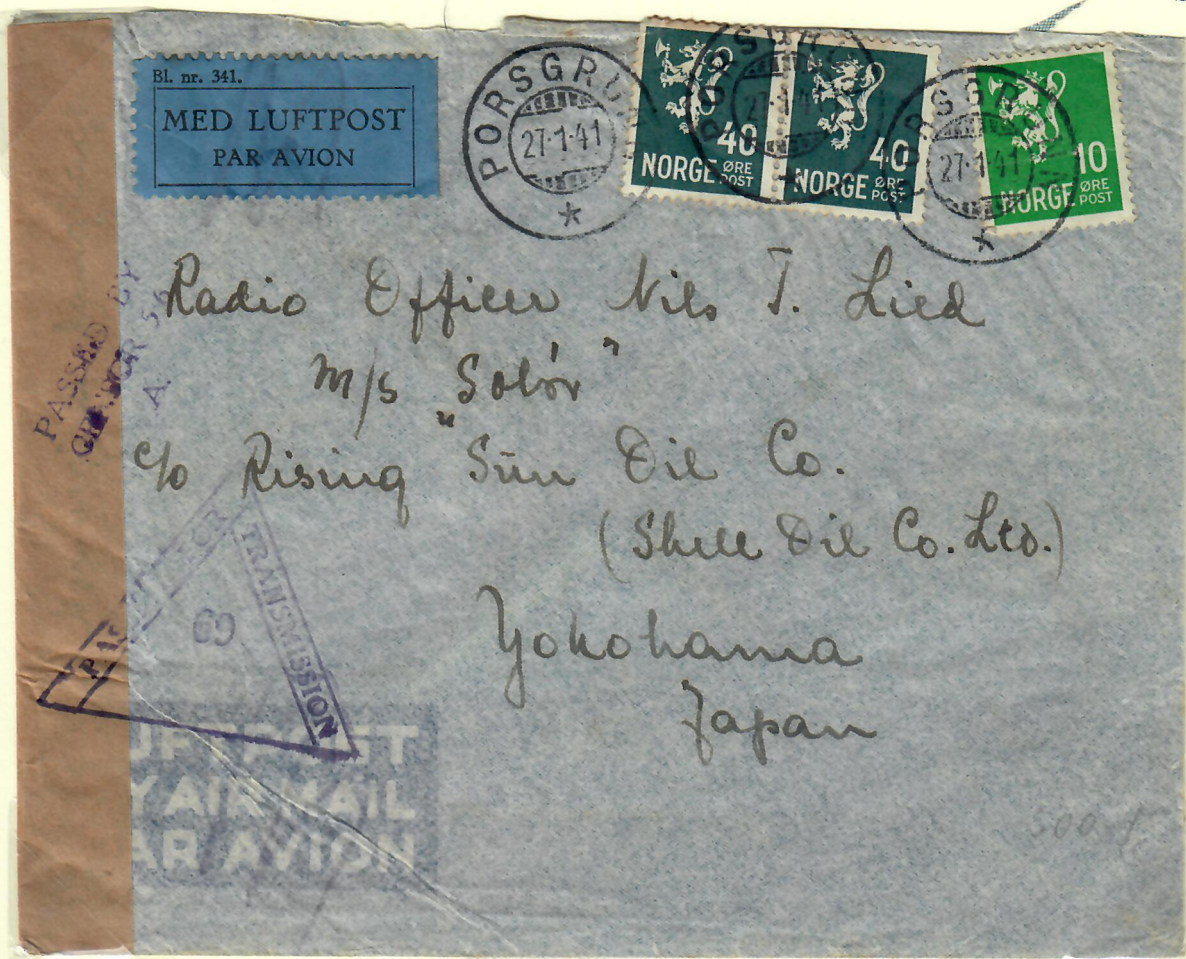 Bl. nr. 341.
MED LUFTPOST
PAR AVION
PORSGRU
27-1-41
40
NORGE ØRE POST
27-1-4
40
NORGE ØRE POST
ORSGR
27-1-41
10
NORGE ØRE POST
Radio Officer Nils T. Lied
m/s "Solör"
c/o Rising Sun Oil Co.
(Shell Oil Co. Ltd.)
Yokohama
Japan
PASSED BY
CENSOR
A.
FOR
TRANSMISSION
69
UFTPOST
Y AIR MAIL
AR AVION